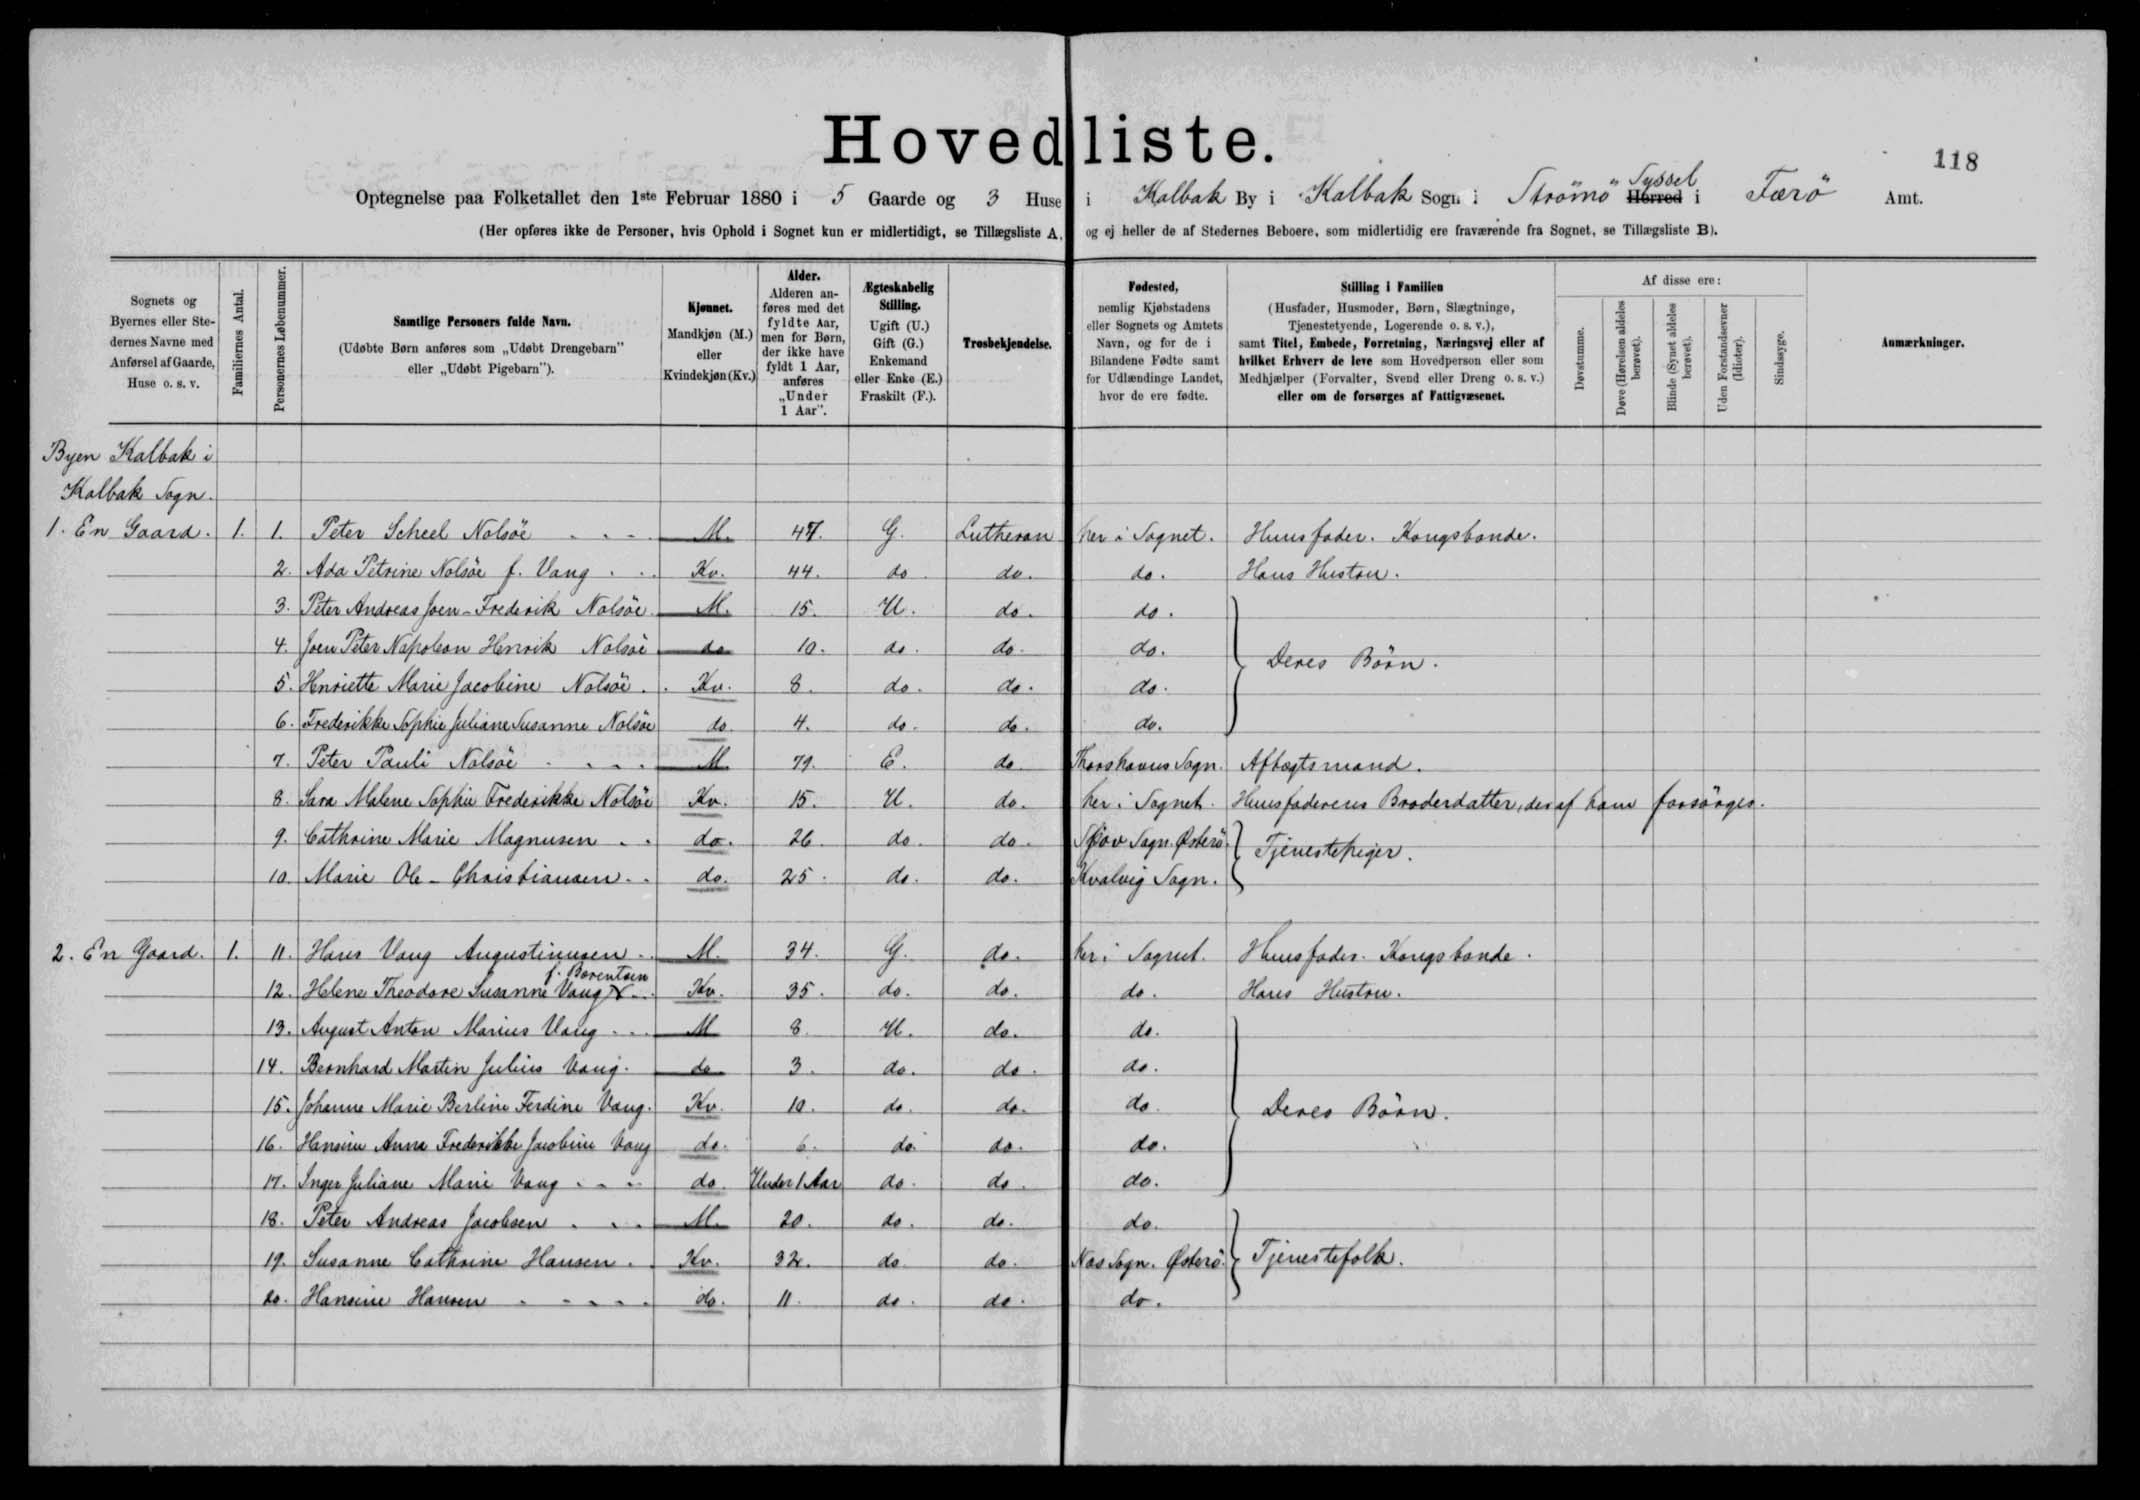 Hovedliste.
118
Optegnelse paa Folketallet den 1ste Februar 1880 i 5 Gaarde og 3 Huse i Kalbak By i Kalbak Sogn i Strömö Syssel Herred i Færö Amt.
(Her opføres ikke de Personer, hvis Ophold i Sognet kun er midlertidigt, se Tillægsliste A, og ej heller de af Stedernes Beboere, som midlertidig ere fraværende fra Sognet, se Tillægsliste B).
Sognets og Byernes eller Stedernes Navne med Anførsel af Gaarde, Huse o. s. v.
Familiernes Antal.
Personernes Løbenummer.
Samtlige Personers fulde Navn.
(Udøbte Børn anføres som „Udøbt Drengebarn" eller „Udøbt Pigebarn").
Kjønnet.
Mandkjøn (M.) eller Kvindekjøn (Kv.)
Alder.
Alderen anføres med det fyldte Aar, men for Børn, der ikke have fyldt 1 Aar, anføres „Under 1 Aar".
Ægteskabelig Stilling.
Ugift (U.) Gift (G.) Enkemand eller Enke (E.) Fraskilt (F.).
Trosbekjendelse.
Fødested,
nemlig Kjøbstadens eller Sognets og Amtets Navn, og for de i Bilandene Fødte samt for Udlændinge Landet, hvor de ere fødte.
Stilling i Familien
(Husfader, Husmoder, Børn, Slægtninge, Tjenestetyende, Logerende o. s. v.),
samt Titel, Embede, Forretning, Næringsvej eller af hvilket Erhverv de leve som Hovedperson eller som Medhjælper (Forvalter, Svend eller Dreng o. s. v.) eller om de forsørges af Fattigvæsenet.
Af disse ere:
Døvstumme.
Døve (Hørelsen aldeles berøvet).
Blinde (Synet aldeles berøvet).
Uden Forstandsevner (Idioter).
Sindssyge.
Anmærkninger.
Byen Kalbak i
Kalbak Sogn.
1. En Gaard. 1. 1. Peter Scheel Nolsöe M. 47. G. Lutheran her i Sognet. Huusfader. Kongsbonde.
2. Ada Petrine Nolsöe f. Vang Kv. 44. do do. do. Hans Hustru.
3. Peter Andreas Joen-Frederik Nolsöe M. 15. U. do. do.
4. Joen Peter Napoleon Henrik Nolsöe do 10. do. do. do. Deres Börn.
5. Henriette Marie Jacobine Nolsöe Kv. 8. do. do. do.
6. Frederikke Sophie Juliane Susanne Nolsöe do. 4. do. do. do.
7. Peter Pauli Nolsöe M 79. E. do Thorshavns Sogn. Aftægtsmand.
8. Sara Malene Sophie Frederikke Nolsöe Kv. 15. U. do. her i Sognet. Huusfaderens Broderdatter, der af ham forsörges.
9. Cathrine Marie Magnusen do. 26. do. do. Sjov Sogn. Østerö. Tjenestepiger.
10. Marie Ole-Christiansen do. 25. do. do. Kvalvig Sogn.
2. En Gaard. 1. 11. Hans Vang Augustinusen M. 34. G. do. her i Sognet. Huusfader. Kongsbonde.
f. Berentsen
12. Helene Theodore Susanne Vang Kv. 35. do. do. do. Hans Hustru.
13. August Anton Marius Vang M 8. U. do. do.
14. Bernhard Martin Julius Vang. do 3. do. do. do.
15. Johanne Marie Berline Ferdine Vang. Kv. 10. do. do. do Deres Börn.
16. Hansine Anna Frederikke Jacobine Vang do. 6. do. do. do.
17. Inger Juliane Marie Vang do. Under 1 Aar do. do do.
18. Peter Andreas Jacobsen M. 20. do. do. do.
19. Susanne Cathrine Hansen Kv. 32. do. do. Nas Sogn. Østerö. Tjenestefolk.
20. Hansine Hansen do. 11. do. do. do.